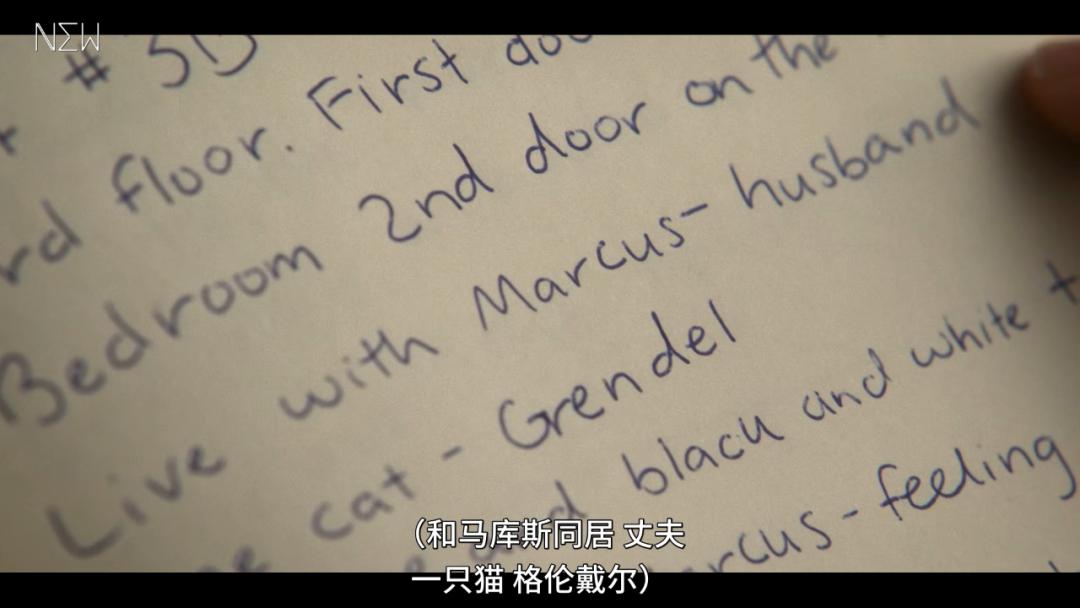 NEW
# 3D
rd floor. First doo
Bedroom 2nd door on the
Live with Marcus - husband
cat - Grendel
and black and white t
rcus - feeling
（和马库斯同居 丈夫
一只猫 格伦戴尔）